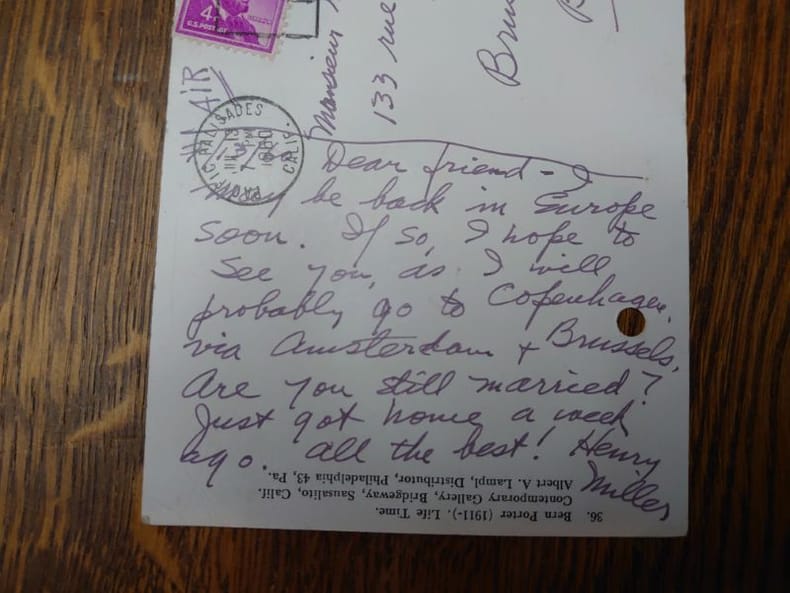 4¢
U.S. POSTAGE
AIR
PACIFIC PALISADES CALIF.
PM
1960
Monsieur
133 rue
Bru
B
Dear friend - I
may be back in Europe
soon. If so, I hope to
see you, as I will
probably go to Copenhagen.
via Amsterdam + Brussels.
Are you still married?
Just got home a week
ago. All the best! Henry
Miller
36. Bern Porter (1911-). Life Time.
Contemporary Gallery, Bridgeway, Sausalito, Calif.
Albert A. Lampl, Distributor, Philadelphia 43, Pa.